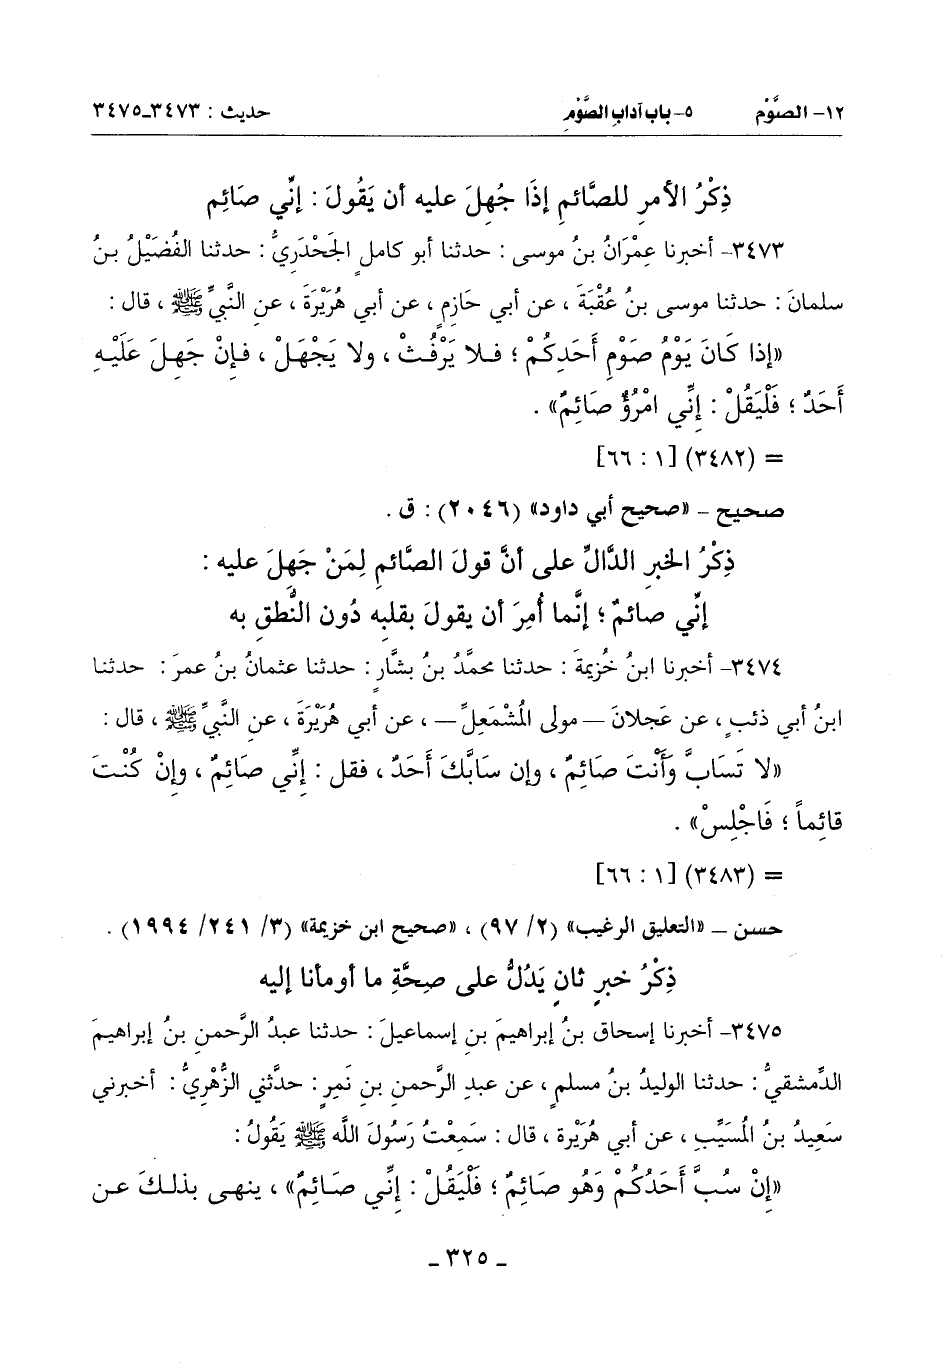 ١٢- الصَّوْم ٥- باب آداب الصَّوْم حديث : ٣٤٧٣-٣٤٧٥
ذِكْرُ الأمرِ للصَّائمِ إذَا جُهِلَ عليه أن يَقُولَ : إنِّي صَائِم
٣٤٧٣- أخبرنا عِمْرَانُ بنُ موسى : حدثنا أبو كاملٍ الجَحْدَرِيُّ : حدثنا الفُضَيْلُ بنُ
سلمانَ : حدثنا موسى بنُ عُقْبَةَ ، عن أبي حَازِمٍ ، عن أبي هُرَيْرَةَ ، عن النَّبيِّ ﷺ ، قال :
«إذا كَانَ يَوْمُ صَوْمِ أَحَدِكُمْ ؛ فـلا يَرْفُثْ ، ولا يَجْهَلْ ، فـإنْ جَهِلَ عَلَيْـهِ
أَحَدٌ ؛ فَلْيَقُلْ : إنِّي امْرُؤٌ صَائِمٌ» .
= (٣٤٨٢) [١ : ٦٦]
صحيح – «صحيح أبي داود» (٢٠٤٦) : ق .
ذِكْرُ الخبرِ الدَّالِّ على أنَّ قولَ الصَّائمِ لِمَنْ جَهِلَ عليه :
إنِّي صائمٌ ؛ إنَّما أُمِرَ أن يقولَ بقلبِه دُون النُّطقِ به
٣٤٧٤- أخبرنا ابنُ خُزيمةَ : حدثنا محمَّدُ بنُ بشَّارٍ : حدثنا عثمانُ بنُ عمرَ : حدثنا
ابنُ أبي ذئبٍ ، عن عَجلانَ —مولى المُشْمَعِلِّ— ، عن أبي هُرَيْرَةَ ، عن النَّبيِّ ﷺ ، قال :
«لا تَسَابَّ وَأَنْتَ صَائِمٌ ، وإن سَابَّكَ أَحَدٌ ، فقل : إنِّي صَائِمٌ ، وإنْ كُنْتَ
قائِماً ؛ فَاجْلِسْ» .
= (٣٤٨٣) [١ : ٦٦]
حسن – «التعليق الرغيب» (٢/ ٩٧) ، «صحيح ابن خزيمة» (٣/ ٢٤١/ ١٩٩٤) .
ذِكْرُ خبرٍ ثانٍ يَدُلُّ على صِحَّةِ ما أومأنا إليه
٣٤٧٥- أخبرنا إسحاق بنُ إبراهيمَ بنِ إسماعيلَ : حدثنا عبدُ الرَّحمنِ بنُ إبراهيمَ
الدِّمشقيُّ : حدثنا الوليدُ بنُ مسلمٍ ، عن عبدِ الرَّحمنِ بنِ نَمِرٍ : حدَّثني الزُّهْرِيُّ : أخبرني
سَعِيدُ بنُ المُسَيِّبِ ، عن أبي هُرَيْرة ، قال : سَمِعْتُ رَسُولَ اللَّه ﷺ يَقُولُ :
«إنْ سُبَّ أَحَدُكُمْ وَهُو صَائِمٌ ؛ فَلْيَقُلْ : إنِّي صـَائِمٌ» ، ينهـى بذلـكَ عـن
ـ ٣٢٥ ـ